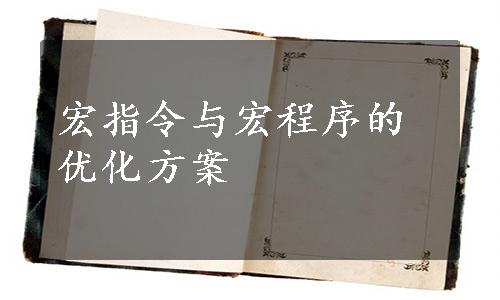 宏指令与宏程序的
优化方案